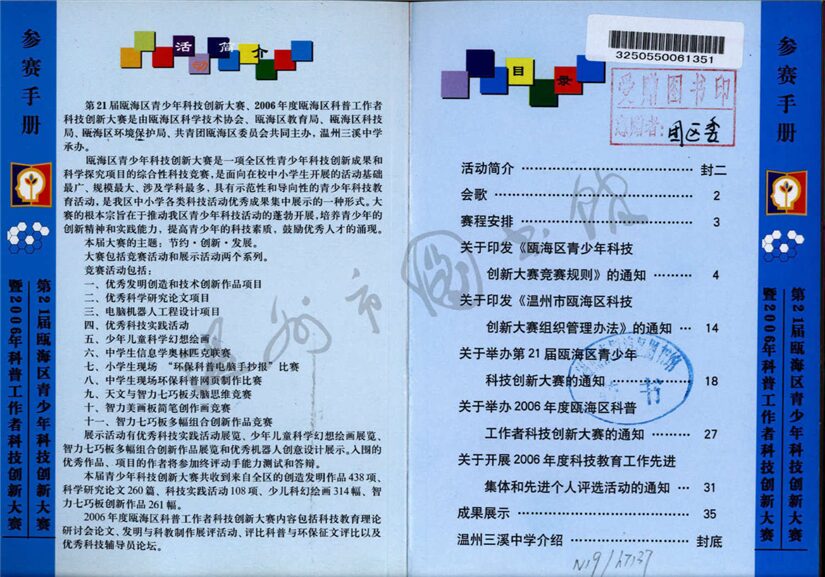 参赛手册
第21届瓯海区青少年科技创新大赛
暨2006年科普工作者科技创新大赛
活动简介
第21届瓯海区青少年科技创新大赛、2006年度瓯海区科普工作者
科技创新大赛是由瓯海区科学技术协会、瓯海区教育局、瓯海区科技
局、瓯海区环境保护局、共青团瓯海区委员会共同主办，温州三溪中学
承办。
瓯海区青少年科技创新大赛是一项全区性青少年科技创新成果和
科学探究项目的综合性科技竞赛，是面向在校中小学生开展的活动基础
最广、规模最大、涉及学科最多，具有示范性和导向性的青少年科技教
育活动，是我区中小学各类科技活动优秀成果集中展示的一种形式。大
赛的根本宗旨在于推动我区青少年科技活动的蓬勃开展，培养青少年的
创新精神和实践能力，提高青少年的科技素质，鼓励优秀人才的涌现。
本届大赛的主题：节约·创新·发展。
大赛包括竞赛活动和展示活动两个系列。
竞赛活动包括：
一、优秀发明创造和技术创新作品项目
二、优秀科学研究论文项目
三、电脑机器人工程设计项目
四、优秀科技实践活动
五、少年儿童科学幻想绘画
六、中学生信息学奥林匹克联赛
七、小学生现场 “环保科普电脑手抄报”比赛
八、中学生现场环保科普网页制作比赛
九、天文与智力七巧板头脑思维竞赛
十、智力美画板简笔创作画竞赛
十一、智力七巧板多幅组合创新作品竞赛
展示活动有优秀科技实践活动展览、少年儿童科学幻想绘画展览、
智力七巧板多幅组合创新作品展览和优秀机器人创意设计展示。入围的
优秀作品、项目的作者将参加终评动手能力测试和答辩。
本届青少年科技创新大赛共收到来自全区的创造发明作品438项、
科学研究论文260篇、科技实践活动108项、少儿科幻绘画314幅、智
力七巧板创新作品261幅。
2006年度瓯海区科普工作者科技创新大赛内容包括科技教育理论
研讨会论文、发明与科教制作展评活动、评比科普与环保征文评比以及
优秀科技辅导员论坛。
目录
3250550061351
受赠图书印
赠者：团区委
活动简介 ………………………………… 封二
会歌 ………………………………… 2
赛程安排 ………………………………… 3
关于印发《瓯海区青少年科技
创新大赛竞赛规则》的通知 ……… 4
关于印发《温州市瓯海区科技
创新大赛组织管理办法》的通知 … 14
关于举办第21届瓯海区青少年
科技创新大赛的通知 ……………… 18
关于举办2006年度瓯海区科普
工作者科技创新大赛的通知 ……… 27
关于开展2006年度科技教育工作先进
集体和先进个人评选活动的通知 … 31
成果展示 ………………………………… 35
温州三溪中学介绍 …………………… 封底
参赛手册
第21届瓯海区青少年科技创新大赛
暨2006年科普工作者科技创新大赛